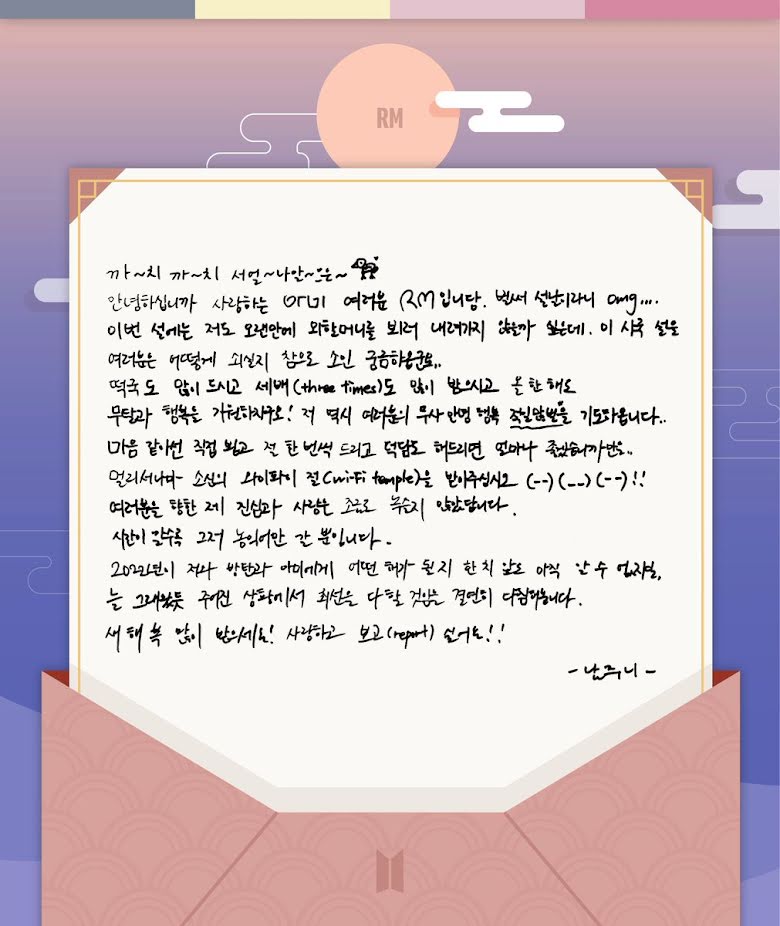 RM
까~치 까~치 서얼~나안~으은~
안녕하십니까 사랑하는 아미 여러분 RM입니당. 벌써 설날이라니 omg....
이번 설에는 저도 오랜만에 외할머니를 뵈러 내려가지 않을까 싶은데. 이 시국 설을
여러분은 어떻게 쇠실지 참으로 소인 궁금하옵군요..
떡국도 많이 드시고 세배(three times)도 많이 받으시고 올 한 해도
무탈과 행복을 기원하지구요! 저 역시 여러분의 무사 안녕 행복 기도하옵니다..
마음 같아선 직접 뵙고 절 한 번씩 드리고 덕담도 해드리면 얼마나 좋겠습니까만은..
멀리서나마 소신의 와이파이 절(wi-fi temple)을 받아주십시오 (--) (__) (--) !!
여러분을 향한 제 진심과 사랑은 조금도 녹슬지 않았답니다.
시간이 갈수록 그저 농익어만 갈 뿐입니다.
2022년이 저와 방탄과 아미에게 어떤 해가 될지 한 치 앞도 아직 알 수 없지만,
늘 그래왔듯 주어진 상황에서 최선을 다할 것임은 결연히 다짐해봅니다.
새해 복 많이 받으세요! 사랑하고 보고(report) 싶어요!!
- 남주니 -